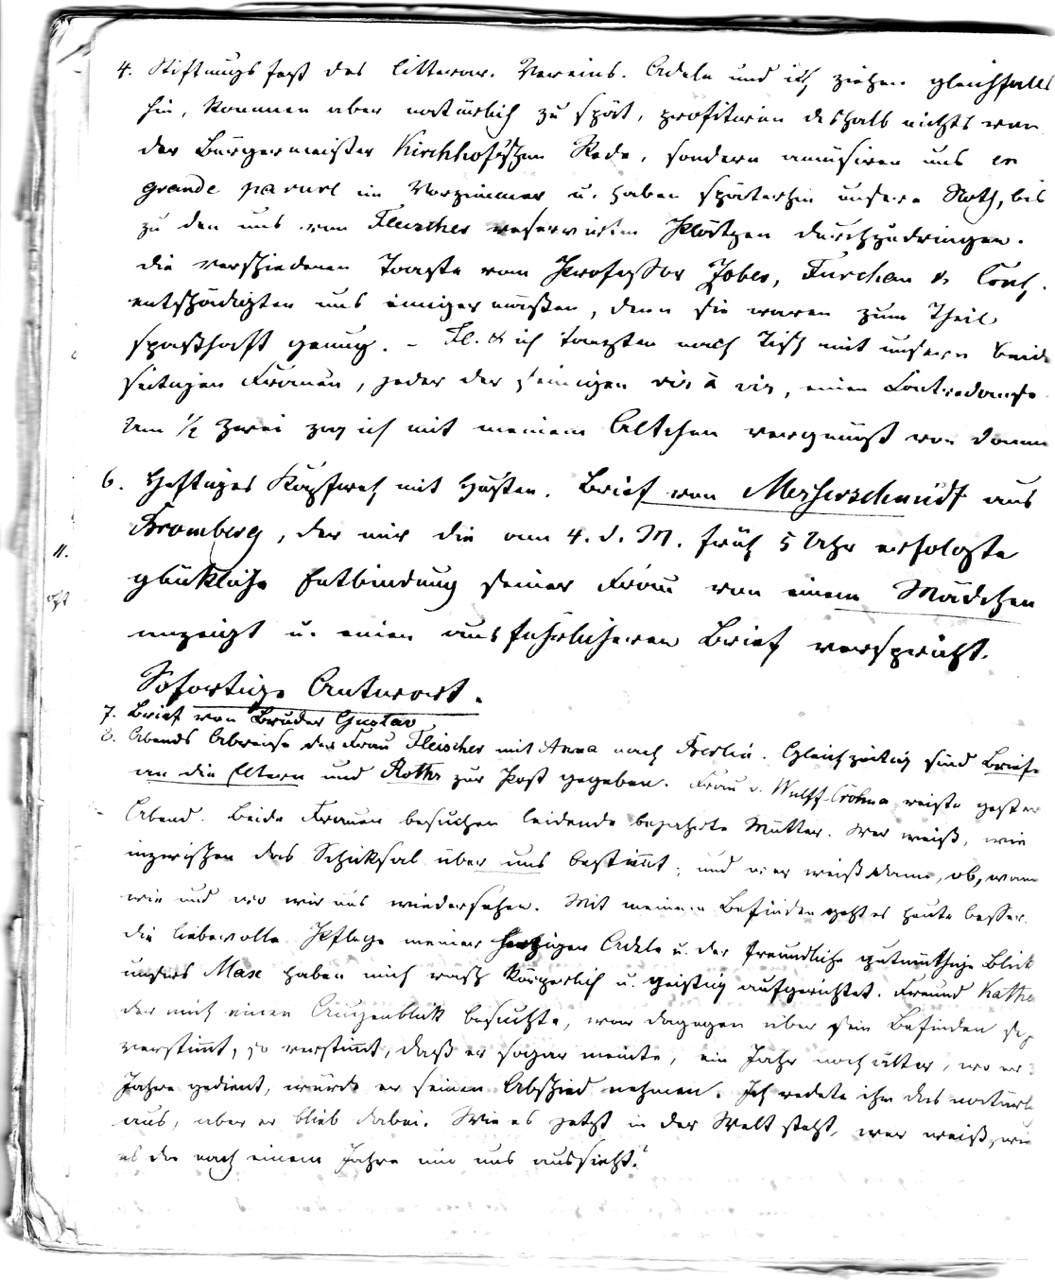 4. Stiftungsfest des litterar. Vereins. Adele und ich ziehen gleichfalls
hin, kommen aber natürlich zu spät, profitiren deshalb nichts von
der Bürgermeister Kirchhofschen Rede, sondern amüsiren uns en
grande parure im Vorzimmer u. haben späterhin unsere Noth, bis
zu den uns von Fleischer reservirten Plätzen durchzudringen.
die verschiedenen Toaste vom Professor Zober, Furchau &
entschädigten uns einigermaßen, denn sie waren zum Theil
spaßhaft genug. – Fl. & ich tanzten nach Tisch mit unsern beid
seitigen Frauen, jeder der seinigen vis à vis, einen Contredanse
Um 1/2 zwei zog ich mit meinem Altchen vergnügt von dann
6. Heftiges Kopfweh mit Husten. Brief von Messerschmidt aus
Bromberg, der mir die am 4. d. M. früh 5 Uhr erfolgte
glückliche Entbindung seiner Frau von einem Mädchen
anzeigt u. einen ausführlicheren Brief verspricht.
Sofortige Antwort.
7. Brief von Bruder Gustav
8. Abends Abreise der Frau Fleischer mit Anna nach Berlin. Gleichzeitig sind Briefe
an die Eltern und Rothe zur Post gegeben. Frau v. Wulff Crona reiste gestern
Abend. Beide Frauen besuchen leidende bejahrte Mütter. Wer weiß, wie
inzwischen das Schicksal über uns bestimt; und wer weiß dann, ob, wann
wie und wo wir uns wiedersehen. Mit meinem Befinden geht es heute besser.
die liebevolle Pflege meiner herzigen Adele u. der freundliche gutmüthige Blick
unsers Max haben mich rasch körperlich u. geistig aufgerichtet. Freund
der mich einen Augenblick besuchte, war dagegen über sein Befinden
verstimt, so verstimt, daß er sogar meinte, ein Jahr noch älter, wo er
Jahre gedient, würde er seinen Abschied nehmen. Ich redete ihm das natürl
aus, aber er blieb dabei. Wie es jetzt in der Welt steht, wer weiß, wie
es da nach einem Jahre um uns aussieht?